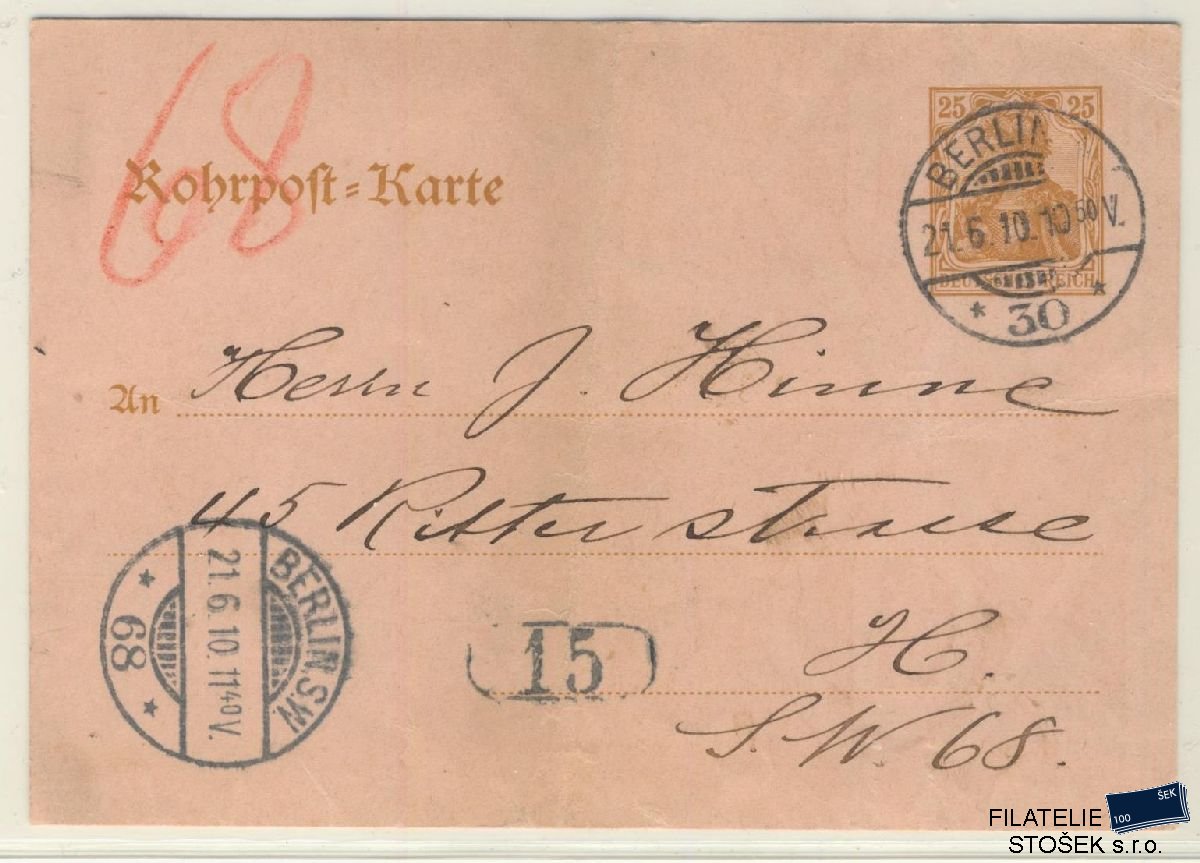 68
Rohrpost=Karte
25 25
DEUTSCHES REICH
BERLIN
21.6.10.10⁵⁰V.
* 30 *
An Herrn J. Hinne
45 Ritterstrasse
H.
S. W. 68.
BERLIN.S.W.
21.6.10.11⁴⁰V.
* 68 *
15
100 ŠEK
FILATELIE
STOŠEK s.r.o.